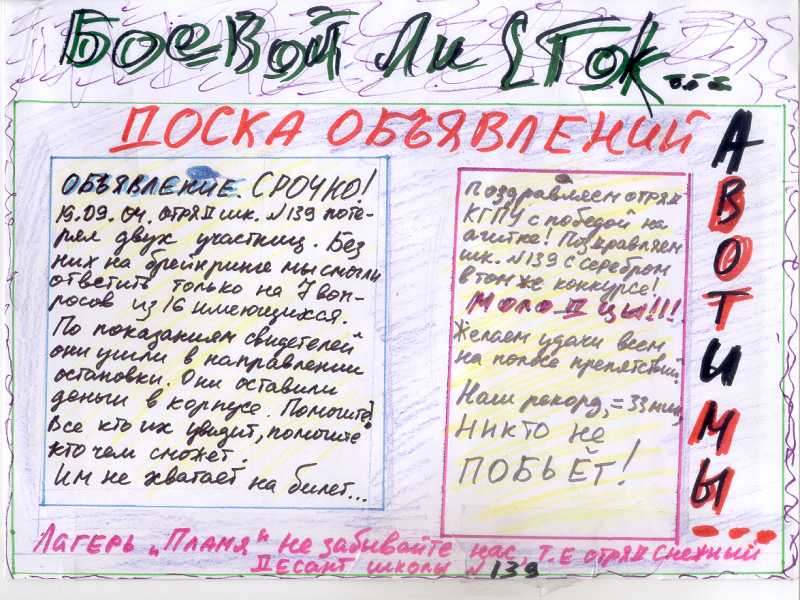 Боевой Листок...
ДОСКА ОБЪЯВЛЕНИЙ
А ВОТ И МЫ...
ОБЪЯВЛЕНИЕ. СРОЧНО!
19.09.04. отряд шк. №139 поте-
рял двух участниц. Без
них на брейнринге мы смогли
ответить только на 7 воп-
росов из 16 имеющихся.
По показаниям свидетелей
они ушли в направлении
остановки. Они оставили
деньги в корпусе. Помогите!
Все кто их увидит, помогите
кто чем сможет.
Им не хватает на билет...
Поздравляем отряд
КГПУ с победой на
агитке! Поздравляем
шк. №139 с серебром
в том же конкурсе!
МОЛОДЦЫ!!!
Желаем удачи всем
на полосе препятствий!
Наш рекорд, = 33 мин,
НИКТО НЕ
ПОБЬЁТ!
Лагерь „Пламя" не забывайте нас, т.е отряд Снежный
Десант школы №139